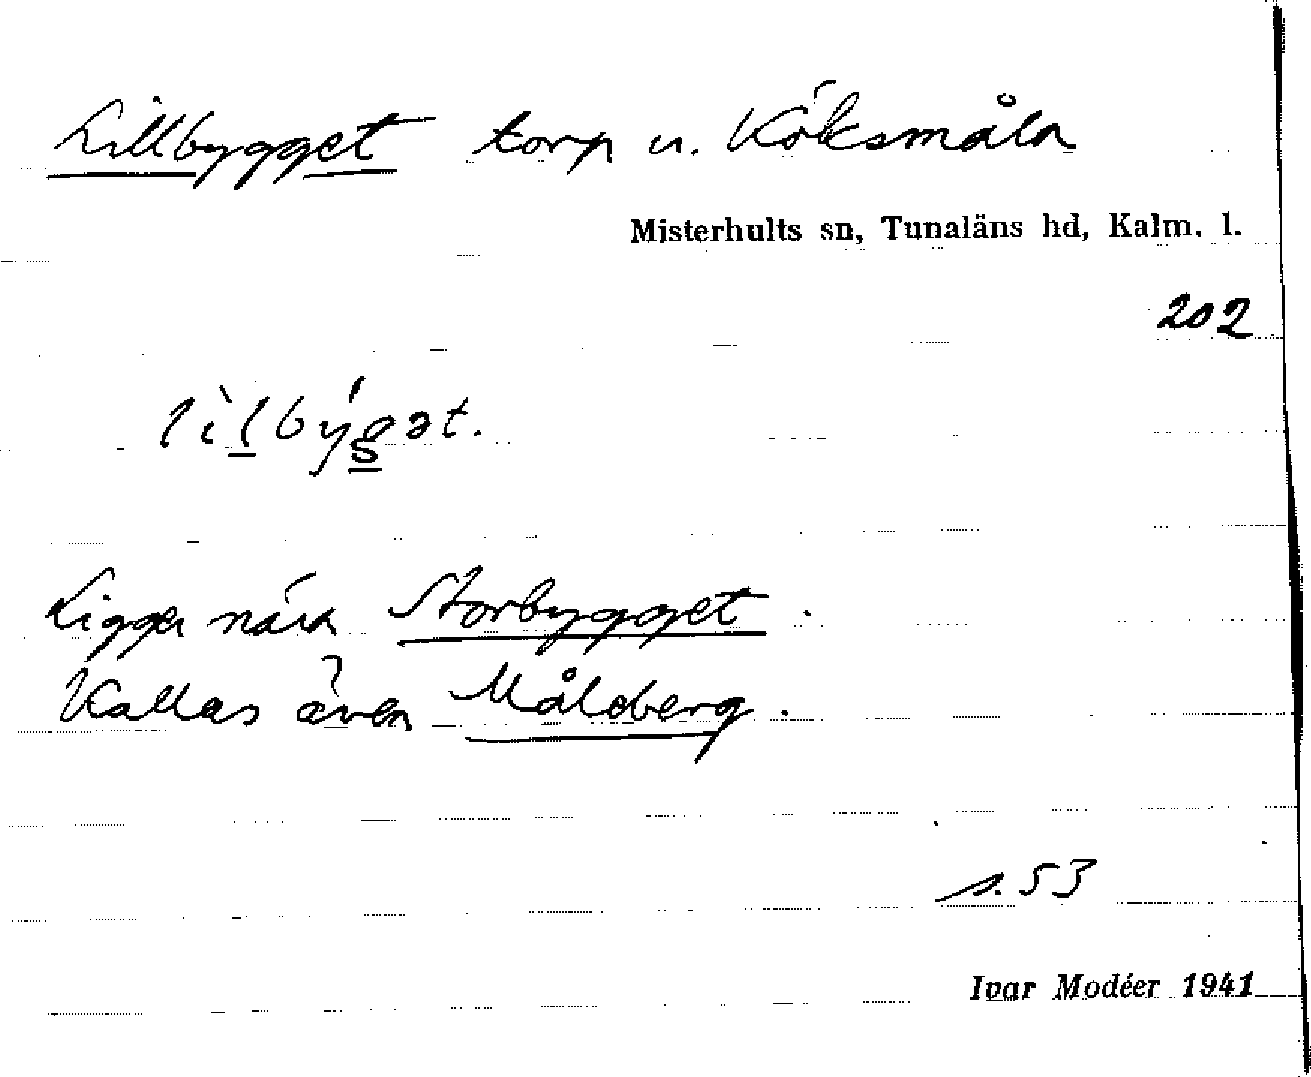 Lillbygget torp u. Köksmåla
Misterhults sn, Tunaläns hd, Kalm. l.
202
lìlbýgət.
Ligger nära Storbygget.
Kallas även Målderg.
s. 53
Ivar Modéer 1941